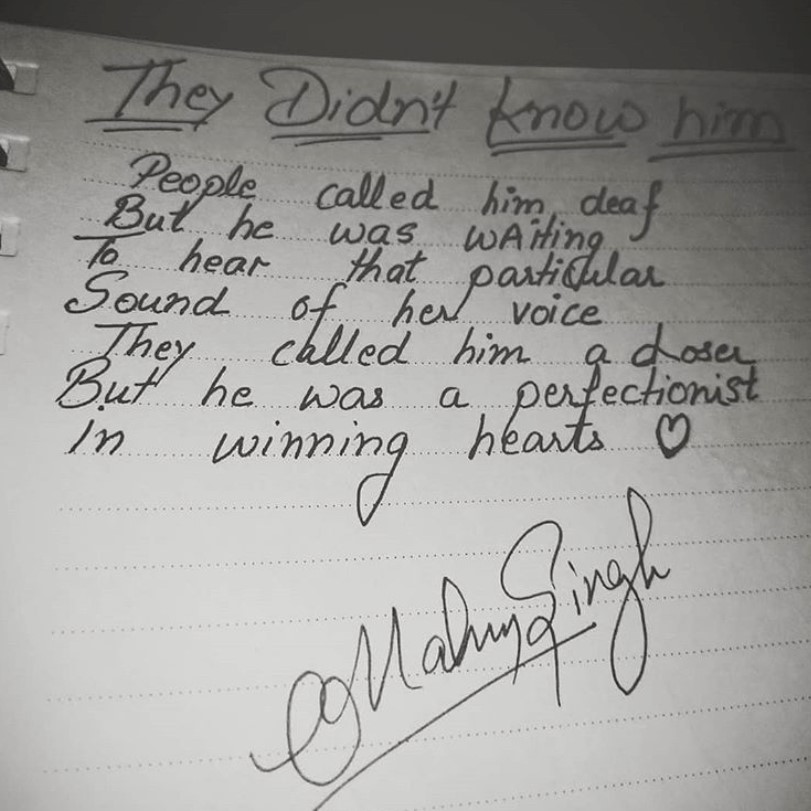 They Didn't Know him
People called him deaf
But he was wAiting
To hear that particular
Sound of her voice
They called him a Loser
But he was a perfectionist
In winning hearts ♡
Singh